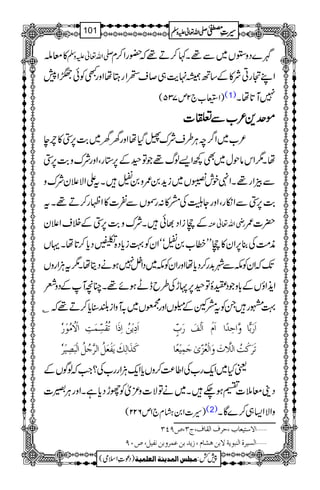 سیرتِ مصطفیٰ صلی اللہ تعالیٰ علیہ وسلم
101
گہرے دوستوں میں سے تھے۔ کہا کرتے تھے کہ حضور اکرم صلی اللہ تعالیٰ علیہ وسلم کا معاملہ
اپنے تجارتی شرکاء کے ساتھ ہمیشہ نہایت ہی صاف ستھرا رہتا تھا اور کبھی کوئی جھگڑا پیش
نہیں آتا تھا۔(1) (استیعاب ج۲ ص۵۳۷)
موحدین عرب سے تعلقات
عرب میں اگرچہ ہر طرف شرک پھیل گیا تھا اور گھر گھر میں بت پرستی کا چرچا
تھا۔ مگر اس ماحول میں بھی کچھ ایسے لوگ تھے جو توحید کے پرستار، اور شرک و بت پرستی
سے بیزار تھے۔ انہی خوش نصیبوں میں زید بن عمرو بن نفیل ہیں۔ یہ علی الاعلان شرک و
بت پرستی سے انکار، اور جاہلیت کی مشرکانہ رسموں سے نفرت کا اظہار کرتے تھے۔ یہ
حضرت عمر رضی اللہ تعالیٰ عنہ کے چچا زاد بھائی ہیں۔ شرک و بت پرستی کے خلاف اعلان
مذمت کی بنا پر ان کا چچا ”خطاب بن نفیل“ ان کو بہت زیادہ تکلیفیں دیا کرتا تھا۔ یہاں
تک کہ ان کو مکہ سے شہر بدر کر دیا تھا اور ان کو مکہ میں داخل نہیں ہونے دیتا تھا۔ مگر یہ ہزاروں
ایذاؤں کے باوجود عقیدۂ توحید پر پہاڑ کی طرح ڈٹے ہوئے تھے۔ چنانچہ آپ کے دو شعر
بہت مشہور ہیں جن کو یہ مشرکین کے میلوں اور مجمعوں میں بہ آواز بلند سنایا کرتے تھے کہ ؎
اَرَبًّا وَّاحِدًا اَمْ اَلْفَ رَبٍّ اَدِيْنُ اِذَا تُقُسِّمَتِ الْاُمُوْرُ
تَرَكْتُ اللَّاتَ وَالْعُزّٰى جَمِيْعًا كَذَالِكَ يَفْعَلُ الرَّجُلُ الْبَصِيْرُ
یعنی کیا میں ایک رب کی اطاعت کروں یا ایک ہزار رب کی؟ جب کہ لوگوں کے
دینی معاملات تقسیم ہو چکے ہیں۔ میں نے تو لات و عزیٰ کو چھوڑ دیا ہے۔ اور ہر بصیرت
والا ایسا ہی کرے گا۔(2) (سیرت ابن ہشام ج۱ ص۲۲۶)
1......الاستیعاب، حرف القاف، ج۳، ص۳۴۹
2......السیرة النبویة لابن هشام، زید بن عمرو بن نفیل، ص۹۰
پیش کش: مجلس المدینة العلمیة (دعوتِ اسلامی)